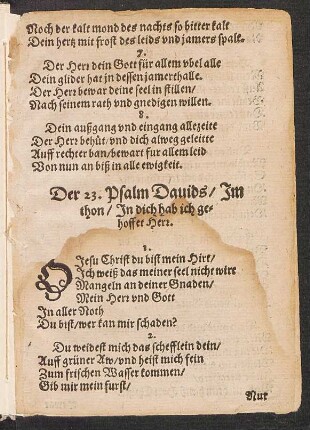 Noch der kalt mond des nachts so bitter kalt
Dein hertz mit frost des leids vnd jamers spalt.
7.
Der Herr dein Gott für allem vbel alle
Dein glider hat jn dessen jamerthalle.
Der Herr bewar deine seel in stillen/
Nach seinem rath vnd gnedigen willen.
8.
Dein außgang vnd eingang allezeite
Der Herr behüt/ vnd dich alweg geleitte
Auff rechter ban/ bewart fur allem leid
Von nun an biß in alle ewigkeit.
Der 23. Psalm Dauids/ Im
thon/ In dich hab ich ge-
hoffet Herr.
1.
O Jesu Christ du bist mein Hirt/
Ich weiß das meiner seel nicht wirt
Mangeln an deiner Gnaden/
Mein Herr vnd Gott
In aller Noth
Du bist/ wer kan mir schaden?
2.
Du weidest mich das schefflein dein/
Auff grüner Aw/ vnd heist mich fein
Zum frischen Wasser kommen/
Gib mir mein furst/
Nur